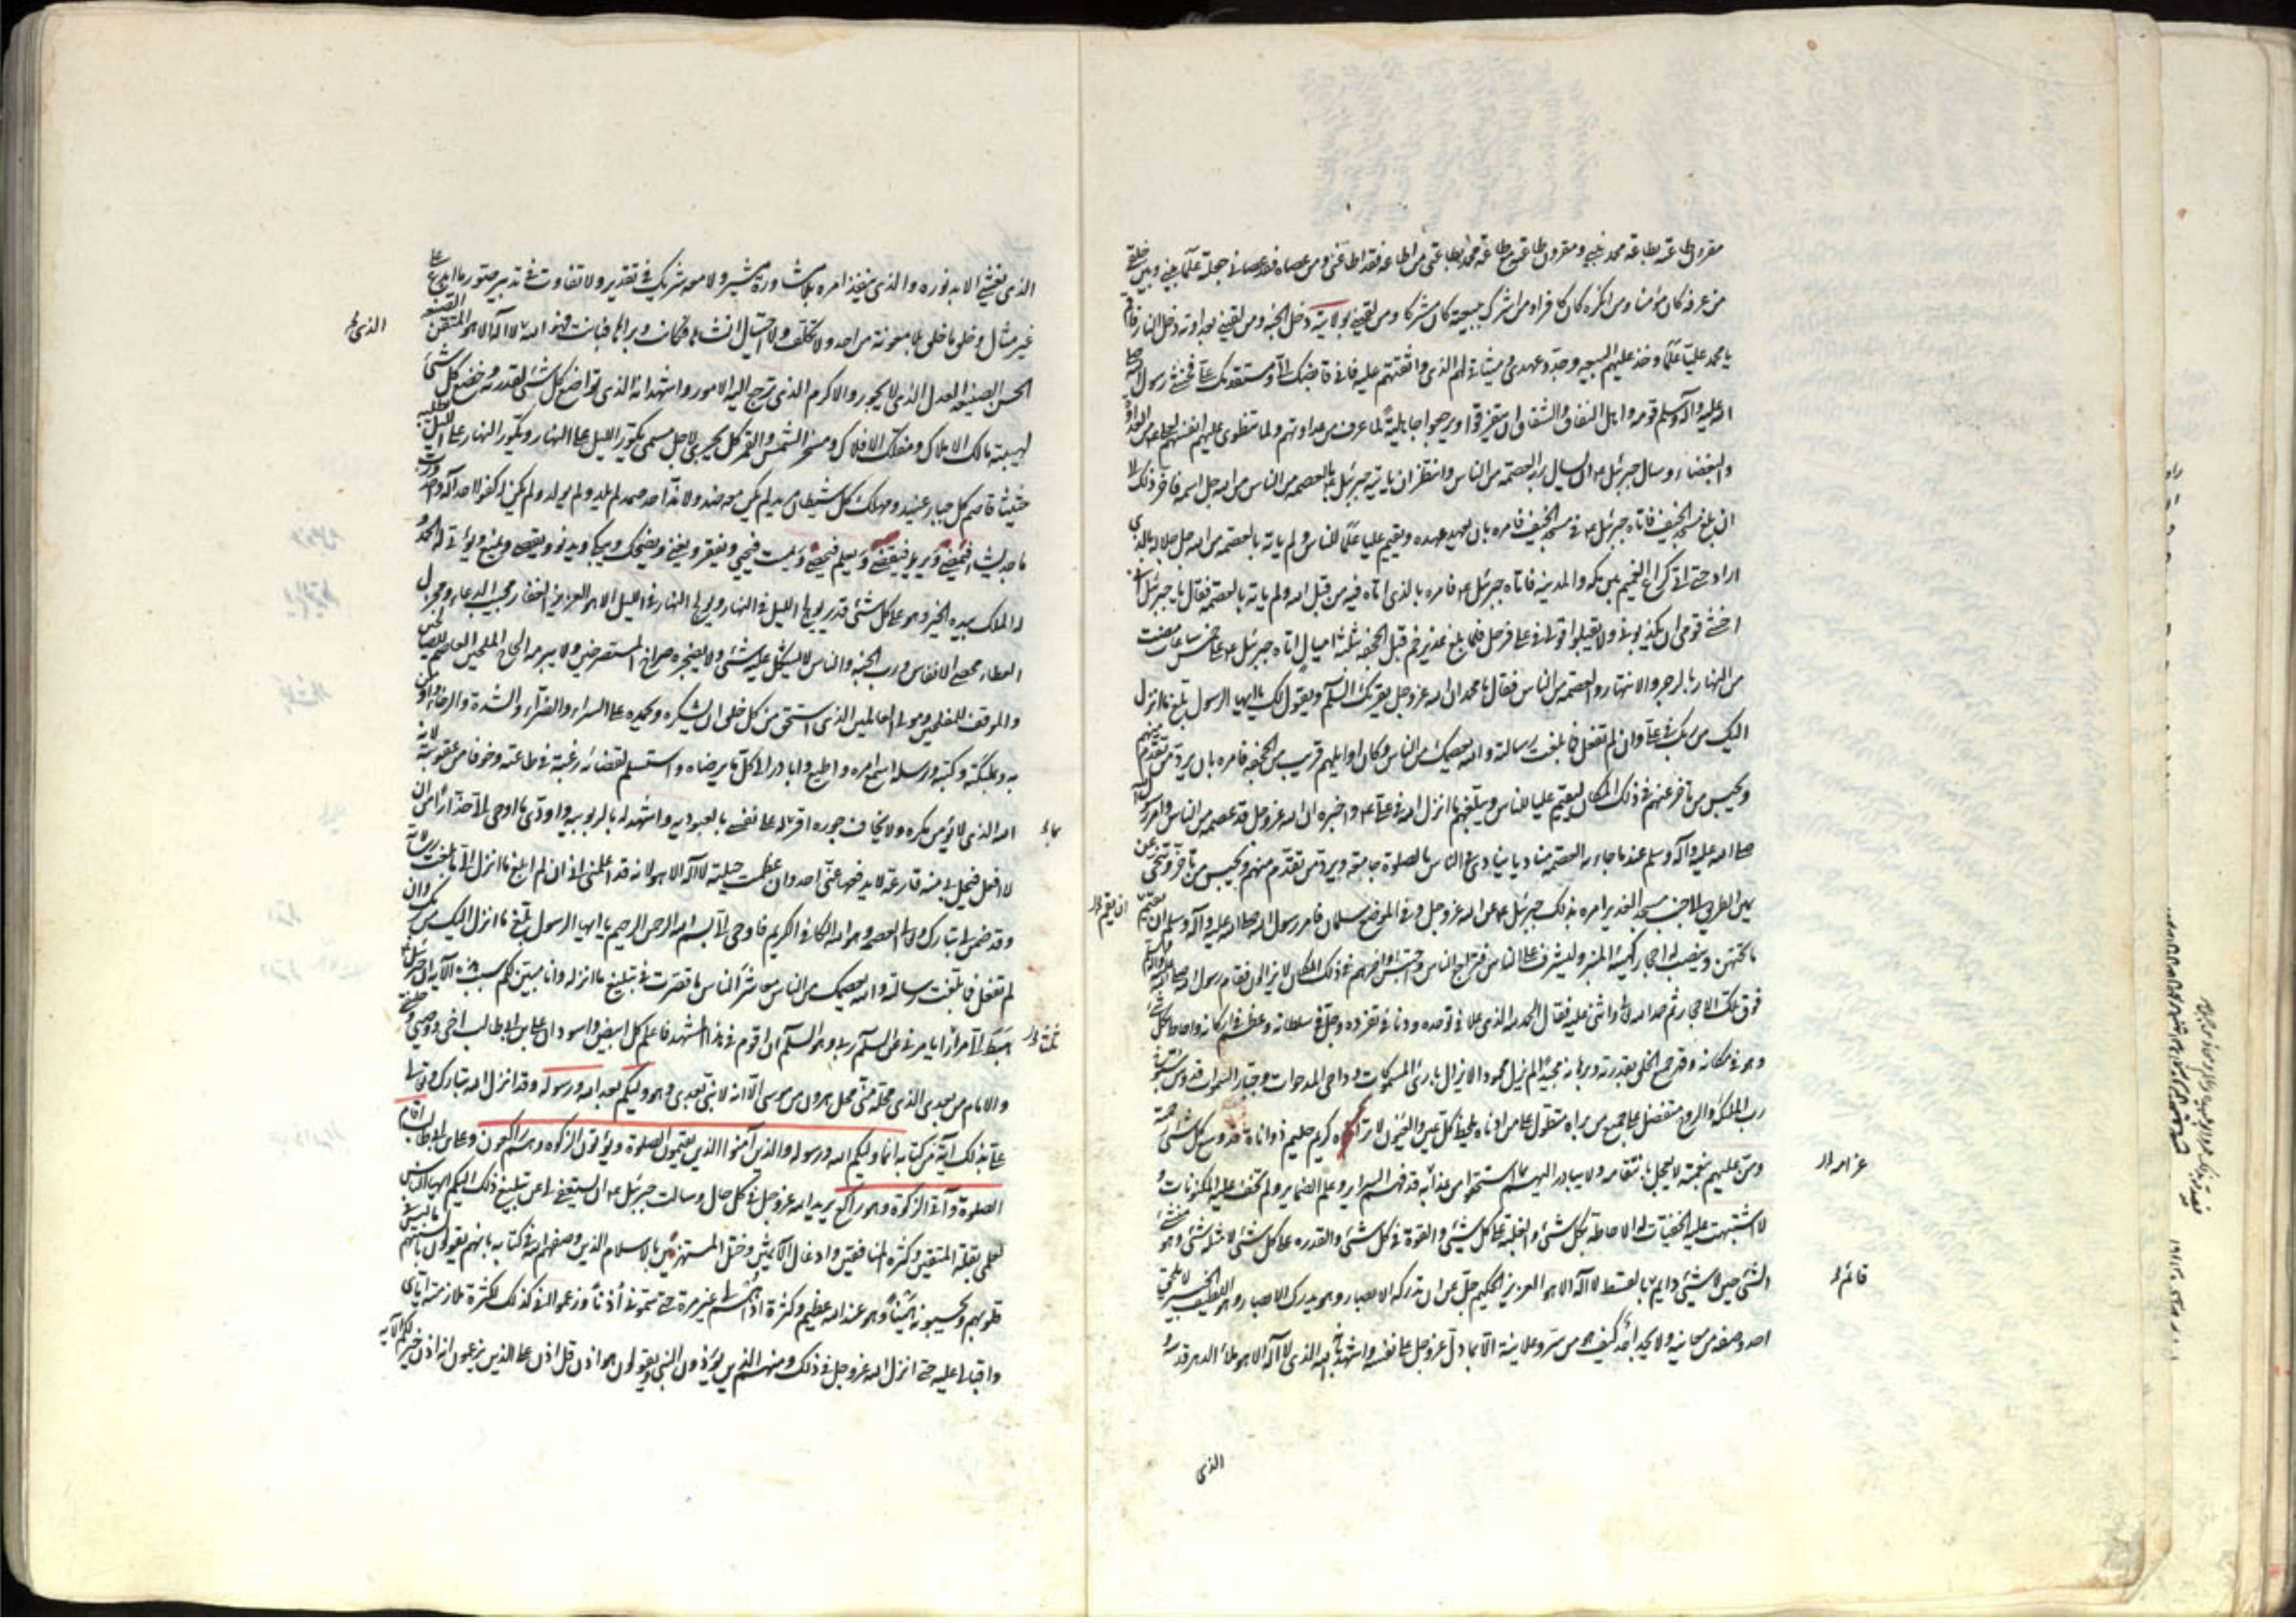 مقرون طاعته بطاعة محمد نبيي ومقرون طاعته مع طاعة محمد بطاعتي من اطاعه فقد اطاعني ومن عصاه فقد عصاني جعلته علما بيني وبين خلقي
من عرفه كان مؤمنا ومن انكره كان كافرا ومن اشرك ببيعته كان مشركا ومن لقيني بولايته دخل الجنة ومن لقيني بعداوته دخل النار فاقم
يا محمد عليا علما وخذ عليهم البيعة وجدد عهدي وميثاقي لهم الذي واثقتهم عليه فاني قابضك الي ومستقدمك علي فخشي رسول الله صلى
الله عليه وآله وسلم قومه واهل النفاق والشقاق ان يتفرقوا ويرجعوا جاهلية لما عرف من عداوتهم ولما تنطوي عليه انفسهم لعلي من العداوة
والبغضاء وسال جبرئيل ان يسال ربه العصمة من الناس وانتظر ان ياتيه جبرئيل بالعصمة من الناس من الله جل اسمه فاخر ذلك الى
ان بلغ مسجد الخيف فاتاه جبرئيل في مسجد الخيف فامره بان يعهد عهده ويقيم عليا علما للناس ولم ياته بالعصمة من الله جل جلاله بالذي
اراد حتى اتى كراع الغميم بين مكة والمدينة فاتاه جبرئيل فامره بالذي اتاه فيه من قبل الله ولم ياته بالعصمة فقال يا جبرئيل اني
اخشى قومي ان يكذبوني ولا يقبلوا قولي في علي فرحل فلما بلغ غدير خم قبل الجحفة بثلثة اميال اتاه جبرئيل على خمس ساعات مضت
من النهار بالزجر والانتهار والعصمة من الناس فقال يا محمد ان الله عز وجل يقرئك السلام ويقول لك يا ايها الرسول بلغ ما انزل
اليك من ربك في علي وان لم تفعل فما بلغت رسالته والله يعصمك من الناس وكان اوايلهم قريب من الجحفة فامره بان يرد من تقدم منهم
ويحبس من تاخر عنهم في ذلك المكان ليقيم عليا للناس ويبلغهم ما انزل الله في علي واخبره ان الله عز وجل قد عصمه من الناس فامر رسول الله
صلى الله عليه وآله وسلم عند ما جاءته العصمة مناديا ينادي في الناس بالصلوة جامعة ويرد من تقدم منهم ويحبس من تاخر وتنحى عن
يمين الطريق الى جنب مسجد الغدير امره بذلك جبرئيل عن الله عز وجل وفي الموضع سلمات فامر رسول الله صلى الله عليه وآله وسلم ان يقم
ما تحتهن وينصب له احجار كهيئة المنبر وليشرف على الناس فتراجع الناس واحتبس اواخرهم في ذلك المكان لا يزالون فقام رسول الله صلى الله عليه وآله وسلم
فوق تلك الاحجار ثم حمد الله واثنى عليه فقال الحمد لله الذي علا في توحده ودنا في تفرده وجل في سلطانه وعظم في اركانه واحاط بكل شيء
وهو في مكانه وقهر جميع الخلق بقدرته وبرهانه مجيدا لم يزل محمودا لا يزال بارئ المسموكات وداحي المدحوات وجبار السموات قدوس سبوح
رب الملئكة والروح متفضل على جميع من براه متطول على من ادناه يلحظ كل عين والعيون لا تراه كريم حليم ذو اناة قد وسع كل شيء رحمته
ومن عليهم بنعمته لا يعجل بانتقامه ولا يبادر اليهم بما استحقوا من عذابه قد فهم السراير وعلم الضماير ولم تخف عليه المكنونات و
لا اشتبهت عليه الخفيات له الاحاطة بكل شيء والغلبة على كل شيء والقوة في كل شيء والقدرة على كل شيء لا مثله شيء وهو منشئ
الشيء حين لا شيء دايم بالقسط لا اله الا هو العزيز الحكيم جل عن ان تدركه الابصار وهو يدرك الابصار وهو اللطيف الخبير لا يلحق
احد وصفه من معاينة ولا يجد احد كيف هو من سر وعلانية الا بما دل عز وجل على نفسه واشهد بانه الله الذي لا اله الا هو ملأ الدهر قدسه و
عذابه
قائم
الذي
الذي يغشي الابد نوره والذي ينفذ امره بلا مشاورة مشير ولا معه شريك في تقدير ولا تفاوت في تدبير صور ما ابدع على
غير مثال وخلق ما خلق بلا معونة من احد ولا تكلف ولا احتيال انشأها فكانت وبراها فبانت فهو الله لا اله الا هو المتقن الصنعة
الحسن الصنيعة العدل الذي لا يجور والاكرم الذي ترجع اليه الامور واشهد انه الذي تواضع كل شيء لقدرته وخضع كل شيء
لهيبته مالك الاملاك ومفلك الافلاك ومسخر الشمس والقمر كل يجري لاجل مسمى يكور الليل على النهار ويكور النهار على الليل يطلبه
حثيثا قاصم كل جبار عنيد ومهلك كل شيطان مريد لم يكن معه ضد ولا ند احد صمد لم يلد ولم يولد ولم يكن له كفوا احد اله واحد ورب
ماجد يشاء فيمضي ويريد فيقضي ويعلم فيحصي ويميت فيحيي ويفقر ويغني ويضحك ويبكي ويدني ويقصي ويمنع ويؤتي له الحمد و
له الملك بيده الخير وهو على كل شيء قدير يولج الليل في النهار ويولج النهار في الليل لا اله الا هو العزيز الغفار مجيب الدعاء ومجزل
العطاء محصي الانفاس ورب الجنة والناس لا يشكل عليه شيء ولا يضجره صراخ المستصرخين ولا يبرمه الحاح الملحين العاصم للصالحين
والموفق للمفلحين ومولى العالمين الذي استحق من كل خلق ان يشكره ويحمده على السراء والضراء والشدة والرخاء واومن
به وبملئكته وكتبه ورسله اسمع امره واطيع وابادر الى كل ما يرضاه واستسلم لقضائه رغبة في طاعته وخوفا من عقوبته لانه
الله الذي لا يؤمن مكره ولا يخاف جوره اقر له على نفسي بالعبودية واشهد له بالربوبية واؤدي ما اوحى الي حذرا من ان
لا افعل فتحل بي منه قارعة لا يدفعها عني احد وان عظمت حيلته لا اله الا هو لانه قد اعلمني اني ان لم ابلغ ما انزل الي فما بلغت رسالته
وقد ضمن لي تبارك وتعالى العصمة وهو الله الكافي الكريم فاوحى الي بسم الله الرحمن الرحيم يا ايها الرسول بلغ ما انزل اليك من ربك وان
لم تفعل فما بلغت رسالته والله يعصمك من الناس معاشر الناس ما قصرت في تبليغ ما انزله وانا مبين لكم سبب هذه الآية ان جبرئيل
هبط الي مرارا يامرني عن السلام ربي وهو السلام ان اقوم في هذا المشهد فاعلم كل ابيض واسود ان علي بن ابي طالب اخي ووصيي وخليفتي
والامام من بعدي الذي محله مني محل هرون من موسى الا انه لا نبي بعدي وهو وليكم بعد الله ورسوله وقد انزل الله تبارك وتعالى
علي بذلك آية من كتابه انما وليكم الله ورسوله والذين آمنوا الذين يقيمون الصلوة ويؤتون الزكوة وهم راكعون وعلي بن ابي طالب اقام
الصلوة وآتى الزكوة وهو راكع يريد الله عز وجل في كل حال وسالت جبرئيل ان يستعفي لي عن تبليغ ذلك اليكم ايها الناس
لعلمي بقلة المتقين وكثرة المنافقين وادغال الآثمين وختل المستهزئين بالاسلام الذين وصفهم الله في كتابه بانهم يقولون بالسنتهم ما ليس في
قلوبهم ويحسبونه هينا وهو عند الله عظيم وكثرة اذاهم لي غير مرة حتى سموني اذنا وزعموا اني كذلك لكثرة ملازمته اياي
واقبالي عليه حتى انزل الله عز وجل في ذلك ومنهم الذين يؤذون النبي ويقولون هو اذن قل اذن على الذين يزعمون انه اذن خير لكم الآية
الذي